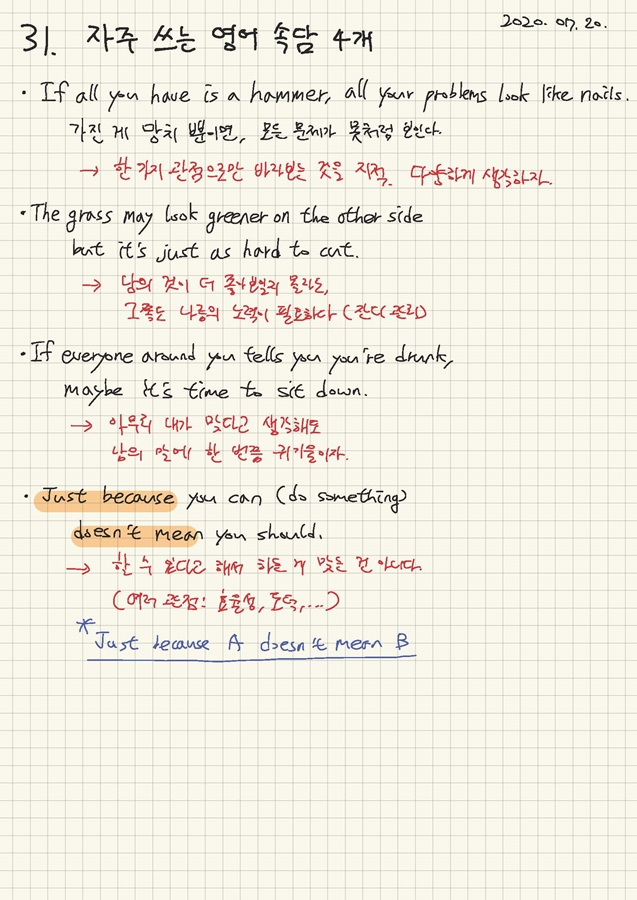 2020. 07. 20.
31. 자주 쓰는 영어 속담 4개
· If all you have is a hammer, all your problems look like nails.
가진 게 망치 뿐이면, 모든 문제가 못처럼 보인다.
→ 한 가지 관점으로만 바라보는 것을 지적. 다양하게 생각하자.
· The grass may look greener on the other side
but it's just as hard to cut.
→ 남의 것이 더 좋아보일지 몰라도,
그쪽도 나름의 노력이 필요하다 (잔디 관리)
· If everyone around you tells you you're drunk,
maybe it's time to sit down.
→ 아무리 내가 맞다고 생각해도
남의 말에 한 번쯤 귀기울이자.
· Just because you can (do something)
doesn't mean you should.
→ 할 수 있다고 해서 하는 게 맞는 건 아니다
(여러 관점: 효율성, 도덕, ...)
* Just because A doesn't mean B